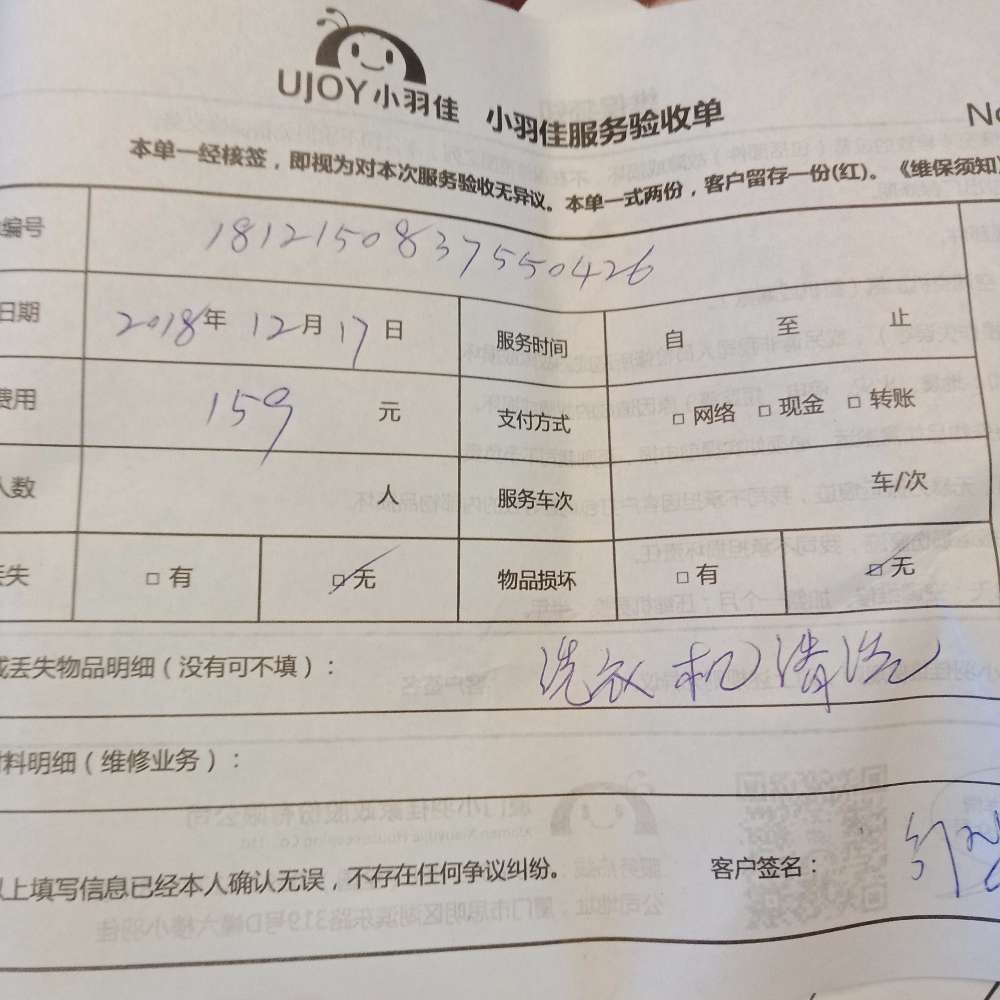 UJOY小羽佳 小羽佳服务验收单 No
本单一经核签，即视为对本次服务验收无异议。本单一式两份，客户留存一份(红)。《维保须知》
编号 1812150837550426
日期 2018年 12月 17日 服务时间 自 至 止
费用 159 元 支付方式 □ 网络 □ 现金 □ 转账
人数 人 服务车次 车/次
丢失 □ 有 □ 无 物品损坏 □ 有 □ 无
或丢失物品明细（没有可不填）： 洗衣机清洗
材料明细（维修业务）：
以上填写信息已经本人确认无误，不存在任何争议纠纷。 客户签名：